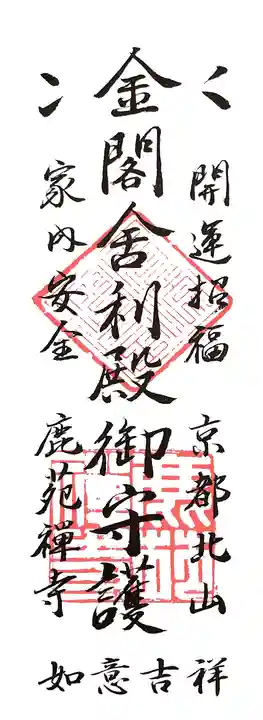 開運招福
京都北山
金閣舍利殿
御守護
家内安全
鹿苑禪寺
如意吉祥